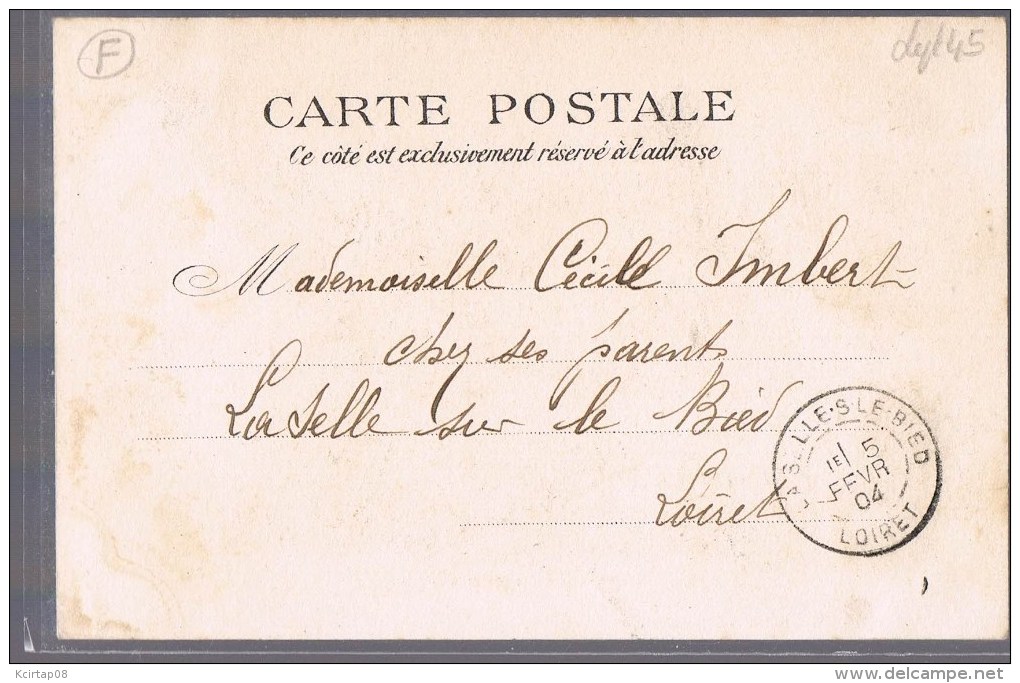 F
CARTE POSTALE
Ce côté est exclusivement réservé à l'adresse
Mademoiselle Cécile Imbert
chez ses parents
La Selle sur le Bied
Loiret
LA SELLE-S-LE-BIED
1E 5
FEVR
04
LOIRET
Kcirtap08
delcampe.net